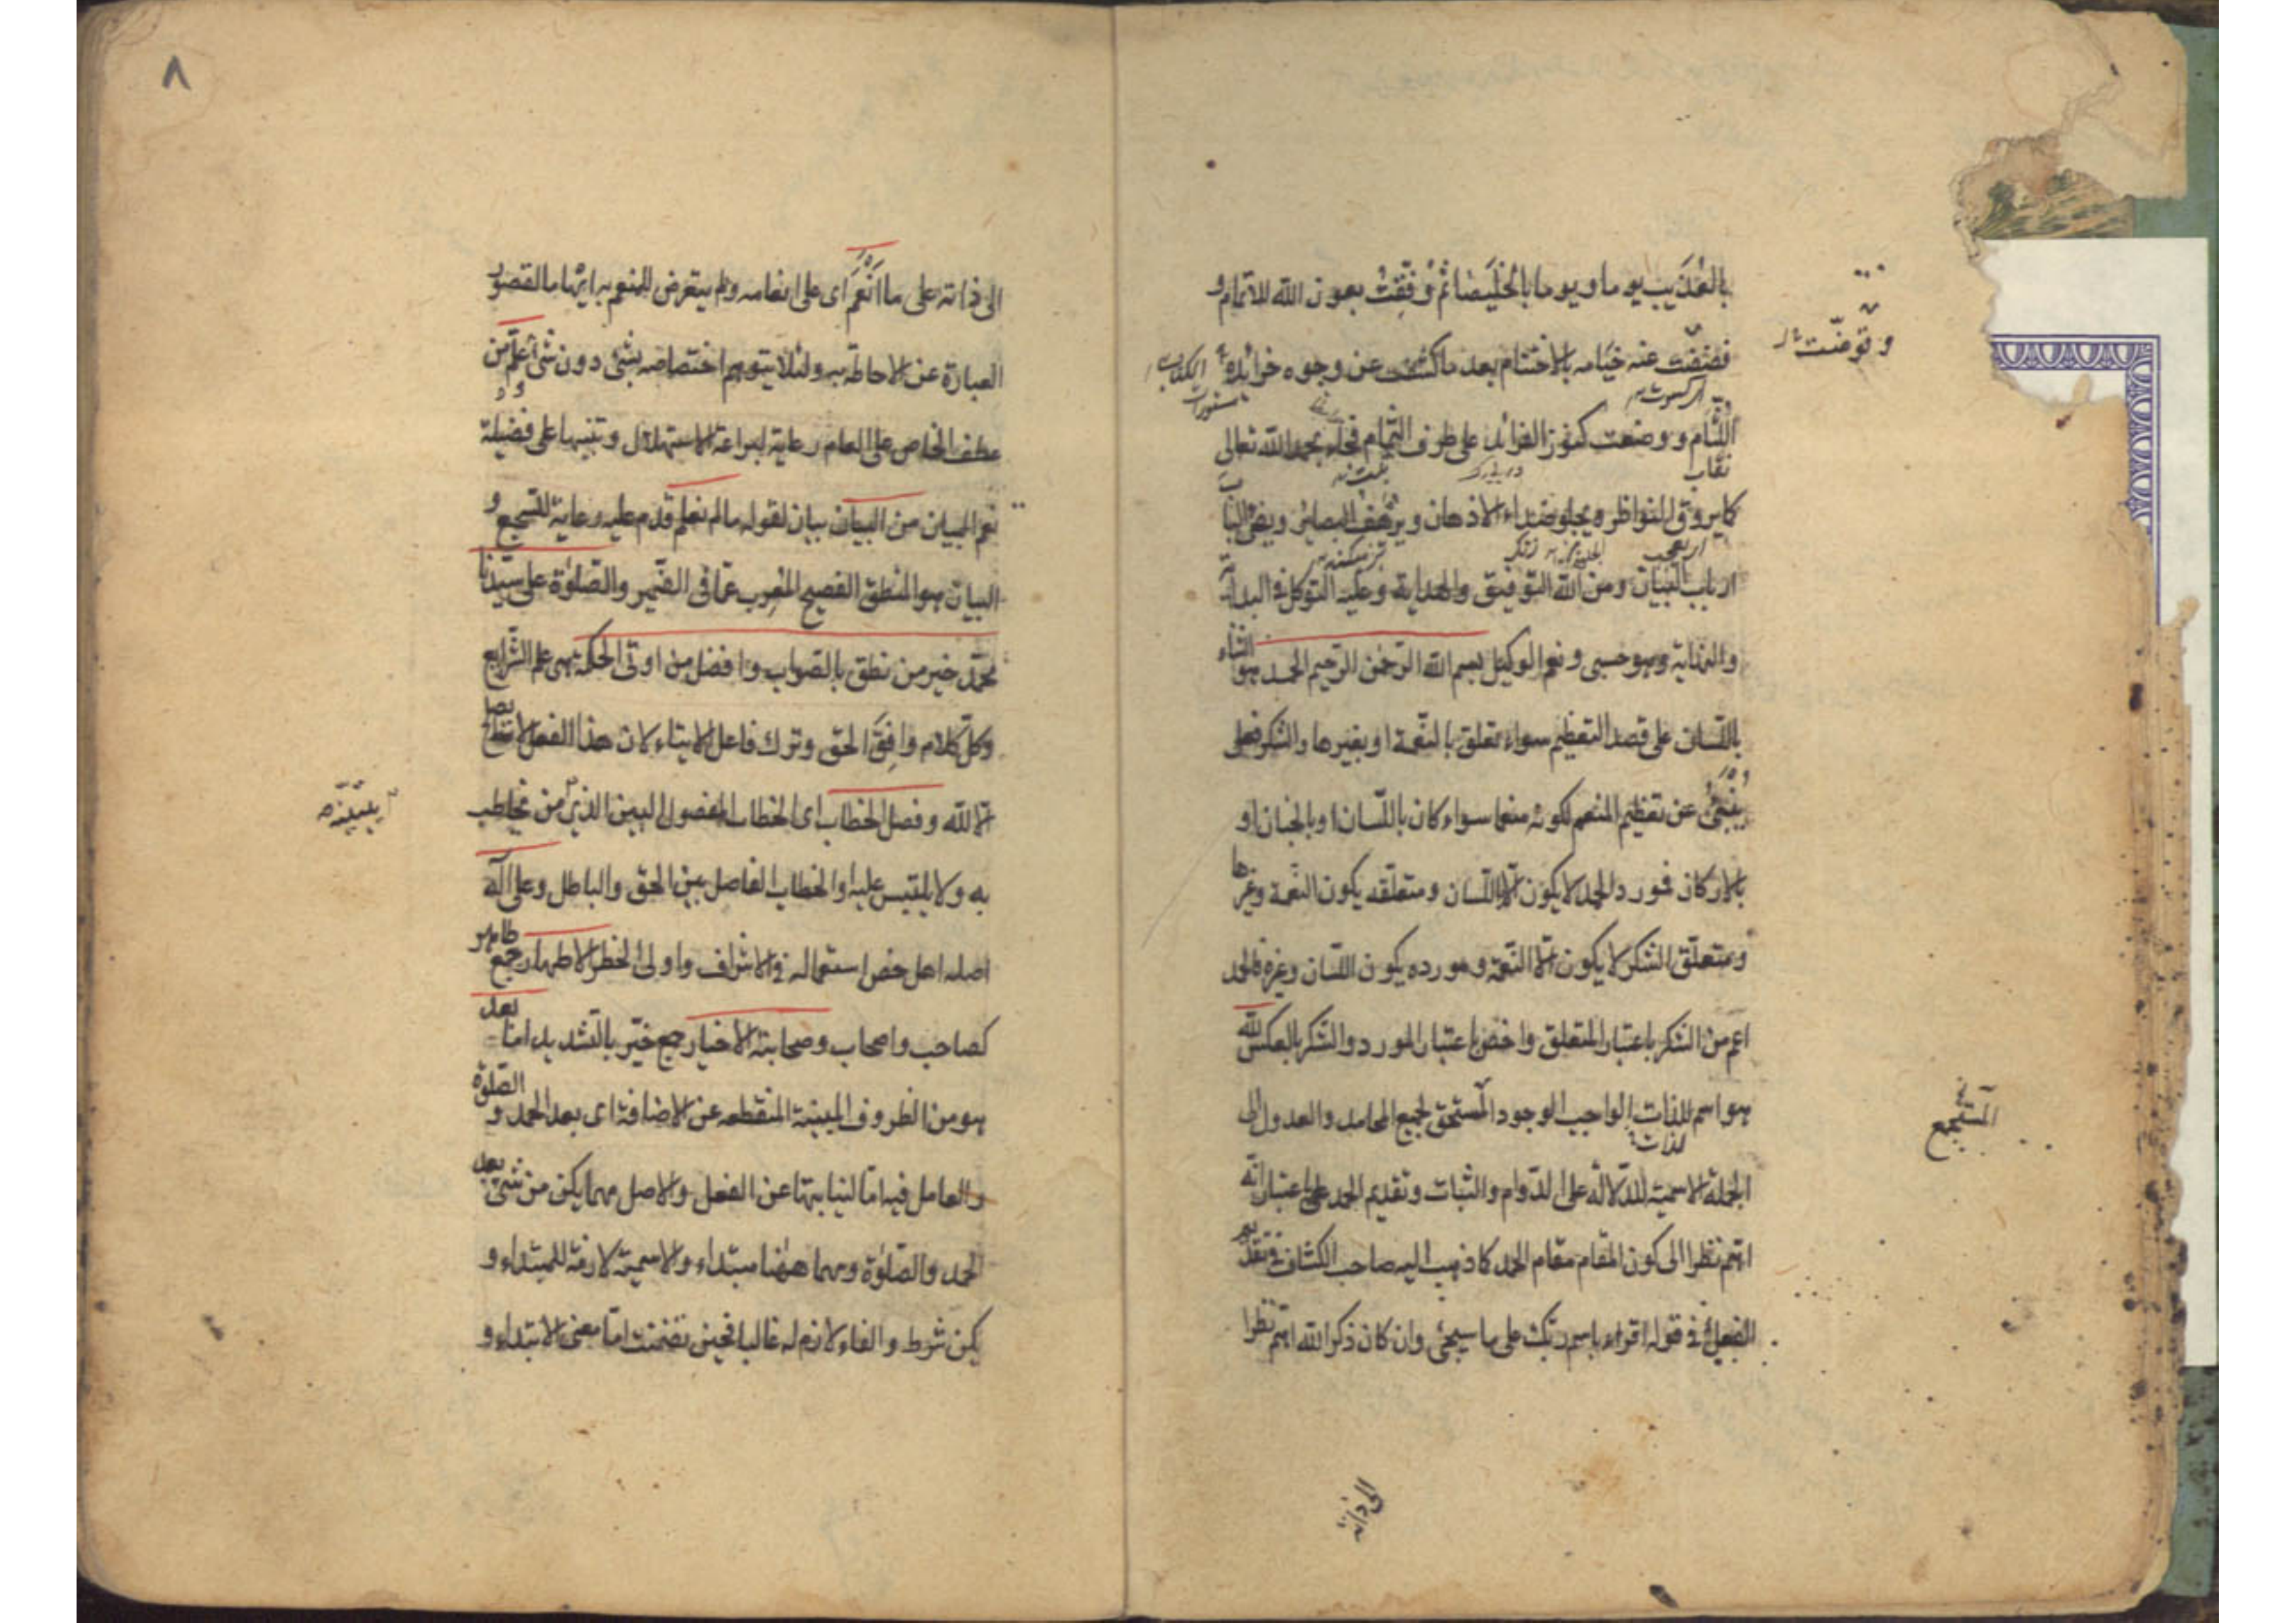 بالعُذَيب يوما ويوما بالخُلَيصَا ثم وُفّقتُ بعون الله للاتمام و
فضَضت عنه ختامه بالاختتام بعد ما كشفت عن وجوه خرائده
اللثام ووضعت كنوز الفرائد على طرف الثمام فجاء بحمد الله تعالى
نقاب
كما يروق النواظر ويجلو صداء الاذهان ويرهف البصائر ويضئ الباب
ارباب البيان ومن الله التوفيق والهداية وعليه التوكل في البداية
والنهاية وهو حسبى ونعم الوكيل بسم الله الرحمن الرحيم الحمد هو الثناء
باللسان على قصد التعظيم سواء تعلق بالنعمة او بغيرها والشكر فعل
ينبئ عن تعظيم المنعم لكونه منعما سواء كان باللسان او بالجنان او
بالاركان فمورد الحمد لا يكون الا اللسان ومتعلقه يكون النعمة وغيرها
ومتعلق الشكر لا يكون الا النعمة ومورده يكون اللسان وغيره فالحمد
اعم من الشكر باعتبار المتعلق واخص باعتبار المورد والشكر بالعكس لله
هو اسم للذات الواجب الوجود المستحق لجميع المحامد والعدول الى
المستجمع
الجملة الاسمية للدلالة على الدوام والثبات وتقديم الحمد على اعتبار انه
اهم نظرا الى كون المقام مقام الحمد كما ذهب اليه صاحب الكشاف فى تقديم
الفعل فى قوله اقراء باسم ربك على ما سيجئ وان كان ذكر الله اهم نظرا
٨
الى ذاته على ما اَنْعَمَ اى على انعامه ولم يتعرض للمنعم به ايهاما لقصور
العبارة عن الاحاطة به ولئلا يتوهم اختصاصه بشئ دون شئ وعلّم من
عطف الخاص على العام رعاية لبراعة الاستهلال وتنبيها على فضيلة
نعم البيان من البيان بيان لقوله ما لم نعلم قدم عليه رعاية للسجع و
البيان هو المنطق الفصيح المعرب عما فى الضمير والصلوة على سيدنا
محمد خير من نطق بالصواب وافضل من اوتى الحكمة هى علم الشرايع
وكل كلام وافق الحق وترك فاعل الايتاء لان هذا الفعل لا يصلح
الا لله وفصل الخطاب اى الخطاب المفصول البين الذى من يخاطب
به ولا يلتبس عليه او الخطاب الفاصل بين الحق والباطل وعلى آله
اصله اهل خص استعماله فى الاشراف واولى الخطر الاطهار جمع طاهر
كصاحب واصحاب وصحابته الاخيار جمع خيّر بالتشديد اما بعد
هو من الظروف المبينة المنقطعه عن الاضافة اى بعد الحمد والصلوة
والعامل فيه اما لنيابتها عن الفعل والاصل مهما يكن من شئ بعد
الحمد والصلوة ومهما ههنا مبتداء والاسمية لازمة للمبتداء و
يكن شرط والفاء لازم له غالبا فحين تضمنت اما معنى الابتداء و